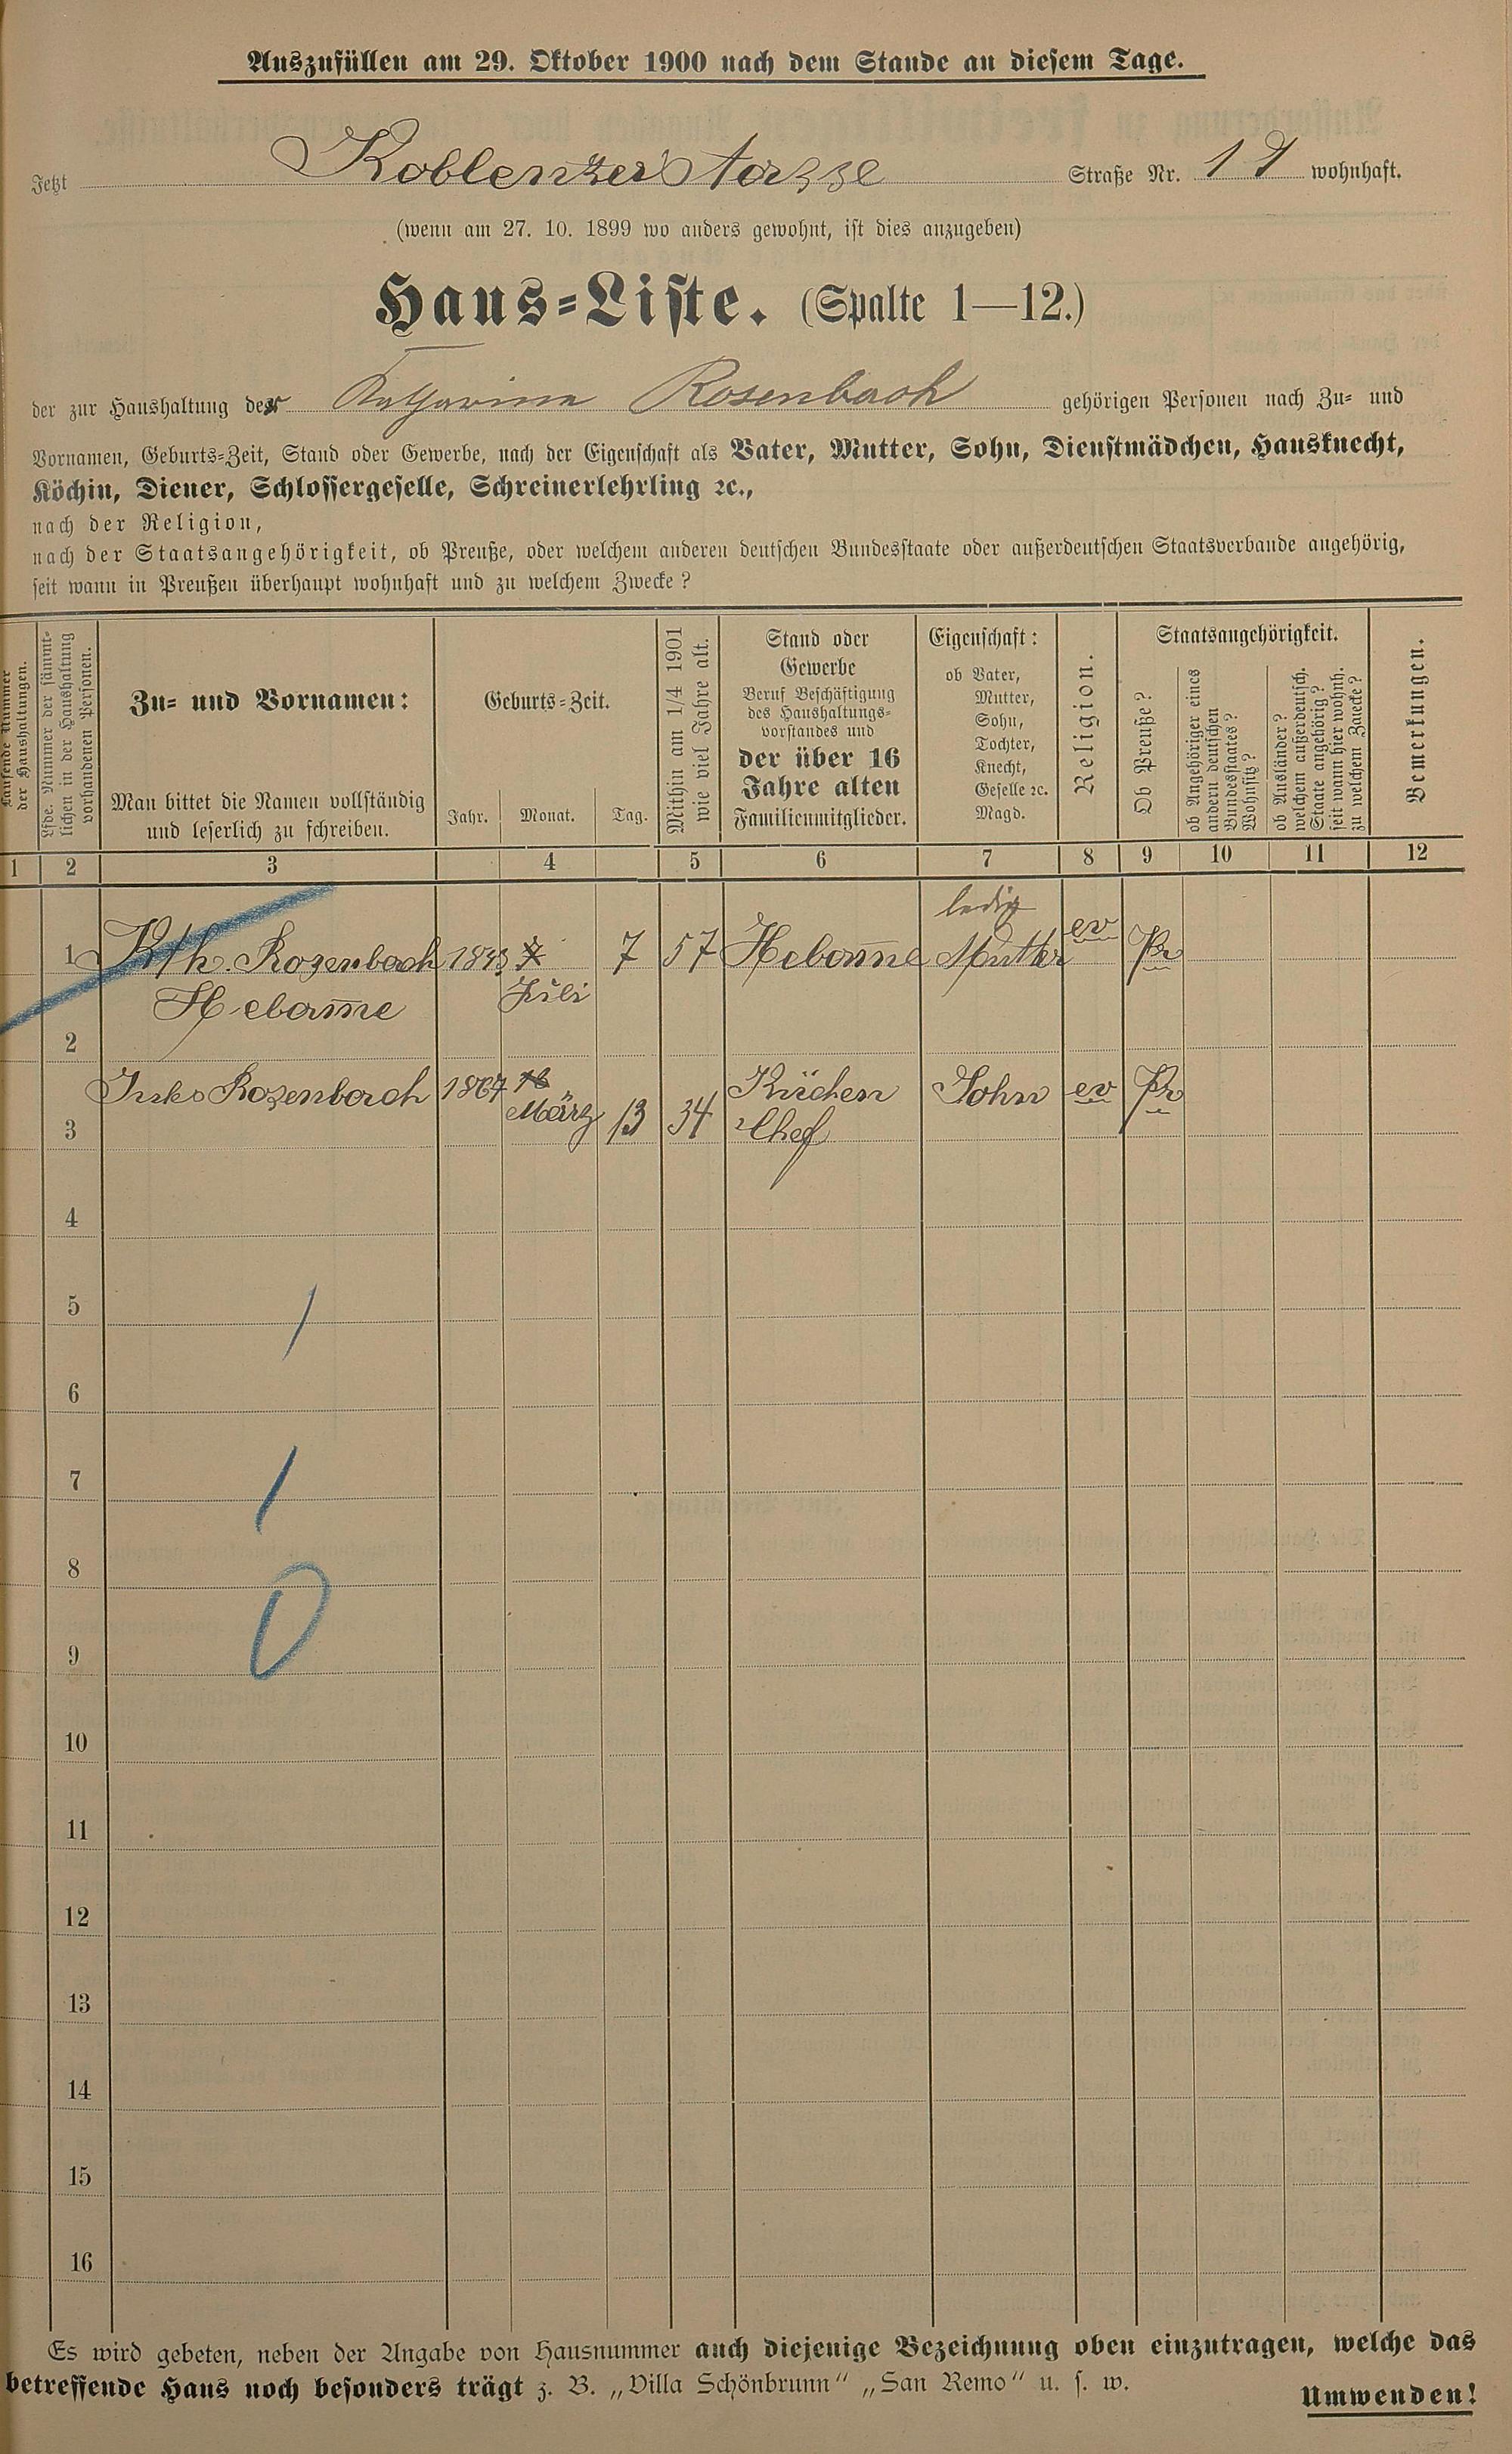 Auszufüllen am 29. Oktober 1900 nach dem Stande an diesem Tage.
Jetzt Koblenzer Strasse Straße Nr. 19 wohnhaft.
(wenn am 27. 10. 1899 wo anders gewohnt, ist dies anzugeben)
Haus-Liste. (Spalte 1—12.)
der zur Haushaltung der Katharina Rosenbach gehörigen Personen nach Zu- und
Vornamen, Geburts-Zeit, Stand oder Gewerbe, nach der Eigenschaft als Vater, Mutter, Sohn, Dienstmädchen, Hausknecht,
Köchin, Diener, Schlossergeselle, Schreinerlehrling ꝛc.,
nach der Religion,
nach der Staatsangehörigkeit, ob Preuße, oder welchem anderen deutschen Bundesstaate oder außerdeutschen Staatsverbande angehörig,
seit wann in Preußen überhaupt wohnhaft und zu welchem Zwecke?
Laufende Nummer
der Haushaltungen.
Lfde. Nummer der sämmt-
lichen in der Haushaltung
vorhandenen Personen.
Zu- und Vornamen:
Man bittet die Namen vollständig
und leserlich zu schreiben.
Geburts-Zeit.
Jahr. Monat. Tag.
Mithin am 1/4 1901
wie viel Jahre alt.
Stand oder
Gewerbe
Beruf Beschäftigung
des Haushaltungs-
vorstandes und
der über 16
Jahre alten
Familienmitglieder.
Eigenschaft:
ob Vater,
Mutter,
Sohn,
Tochter,
Knecht,
Geselle ꝛc.
Magd.
Religion.
Staatsangehörigkeit.
Ob Preuße?
ob Angehöriger eines
andern deutschen
Bundesstaates?
Wohnsitz?
ob Ausländer?
welchem außerdeutsch.
Staate angehörig?
seit wann hier wohnh.
zu welchem Zwecke?
Bemerkungen.
1 2 3 4 5 6 7 8 9 10 11 12
ledig
1 Kth. Rosenbach 1843 7 57 Hebamme Mutter ev Pr
Hebamme Juli
2
Rosenbach 1867 März 13 34 Küchen Sohn ev Pr
3 Chef
4
5
6
7
8
9
10
11
12
13
14
15
16
Es wird gebeten, neben der Angabe von Hausnummer auch diejenige Bezeichnung oben einzutragen, welche das
betreffende Haus noch besonders trägt z. B. „Villa Schönbrunn“ „San Remo“ u. s. w.
Umwenden!